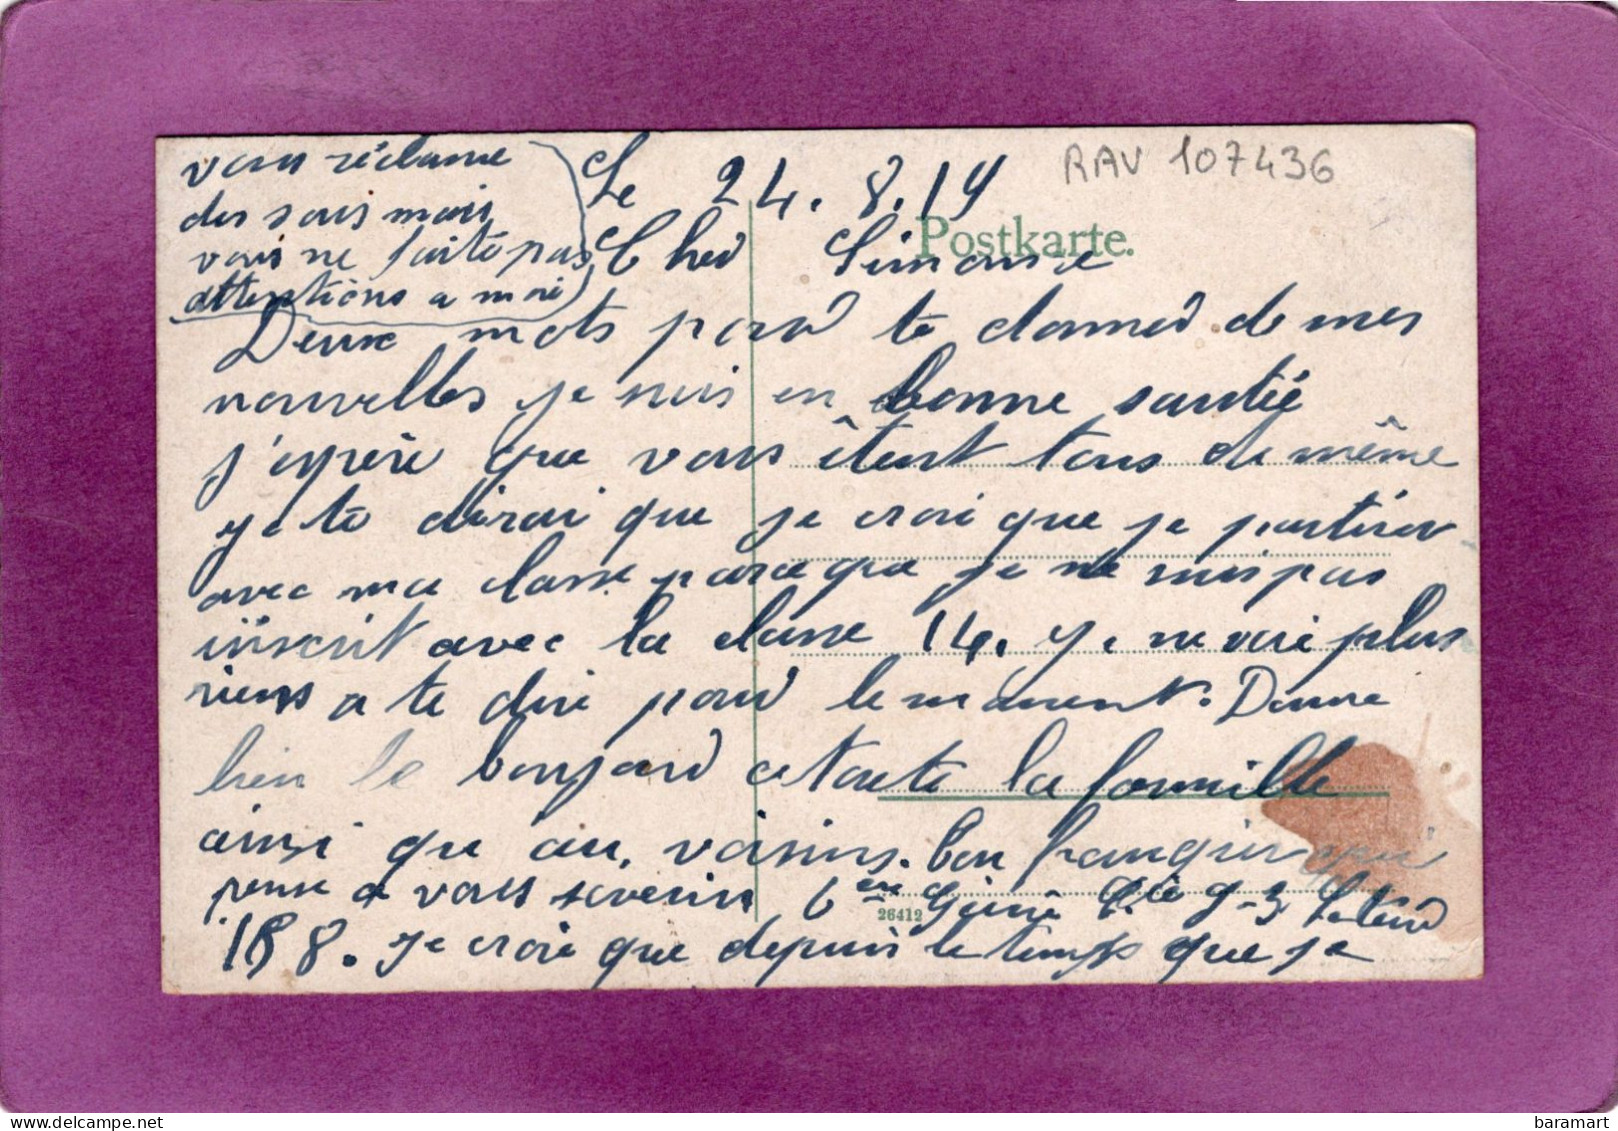 Le 24.8.19
RAV 107436
Postkarte.
Cher Simone
Deux mots pour te donner de mes
nouvelles je suis en bonne santée
j'espère que vous êtent tous de même
je te dirai que je croi que je partirer
avec ma classe parce que je ne suis pas
inscrit avec la classe 14. je ne voi plus
riens a te dire pour le moment. Donne
bien le bonjour a toute la famille
ainsi que au voisins. bon franquin qui
pense a vous severin 6ère Génie Cie 9-3 Secteur
26412
188. je croie que depuis le temps que je
vous réclame
des sous mais
vous ne faite pas
attentions a moi
baramart